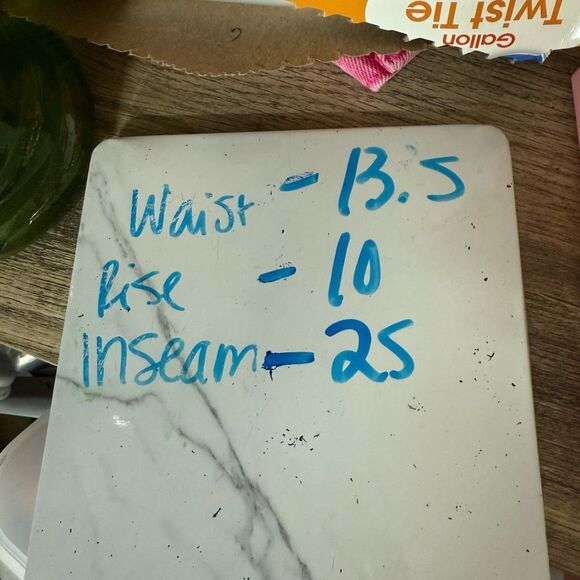 Gallon
Twist Tie
Waist - 13.5
Rise - 10
Inseam - 25